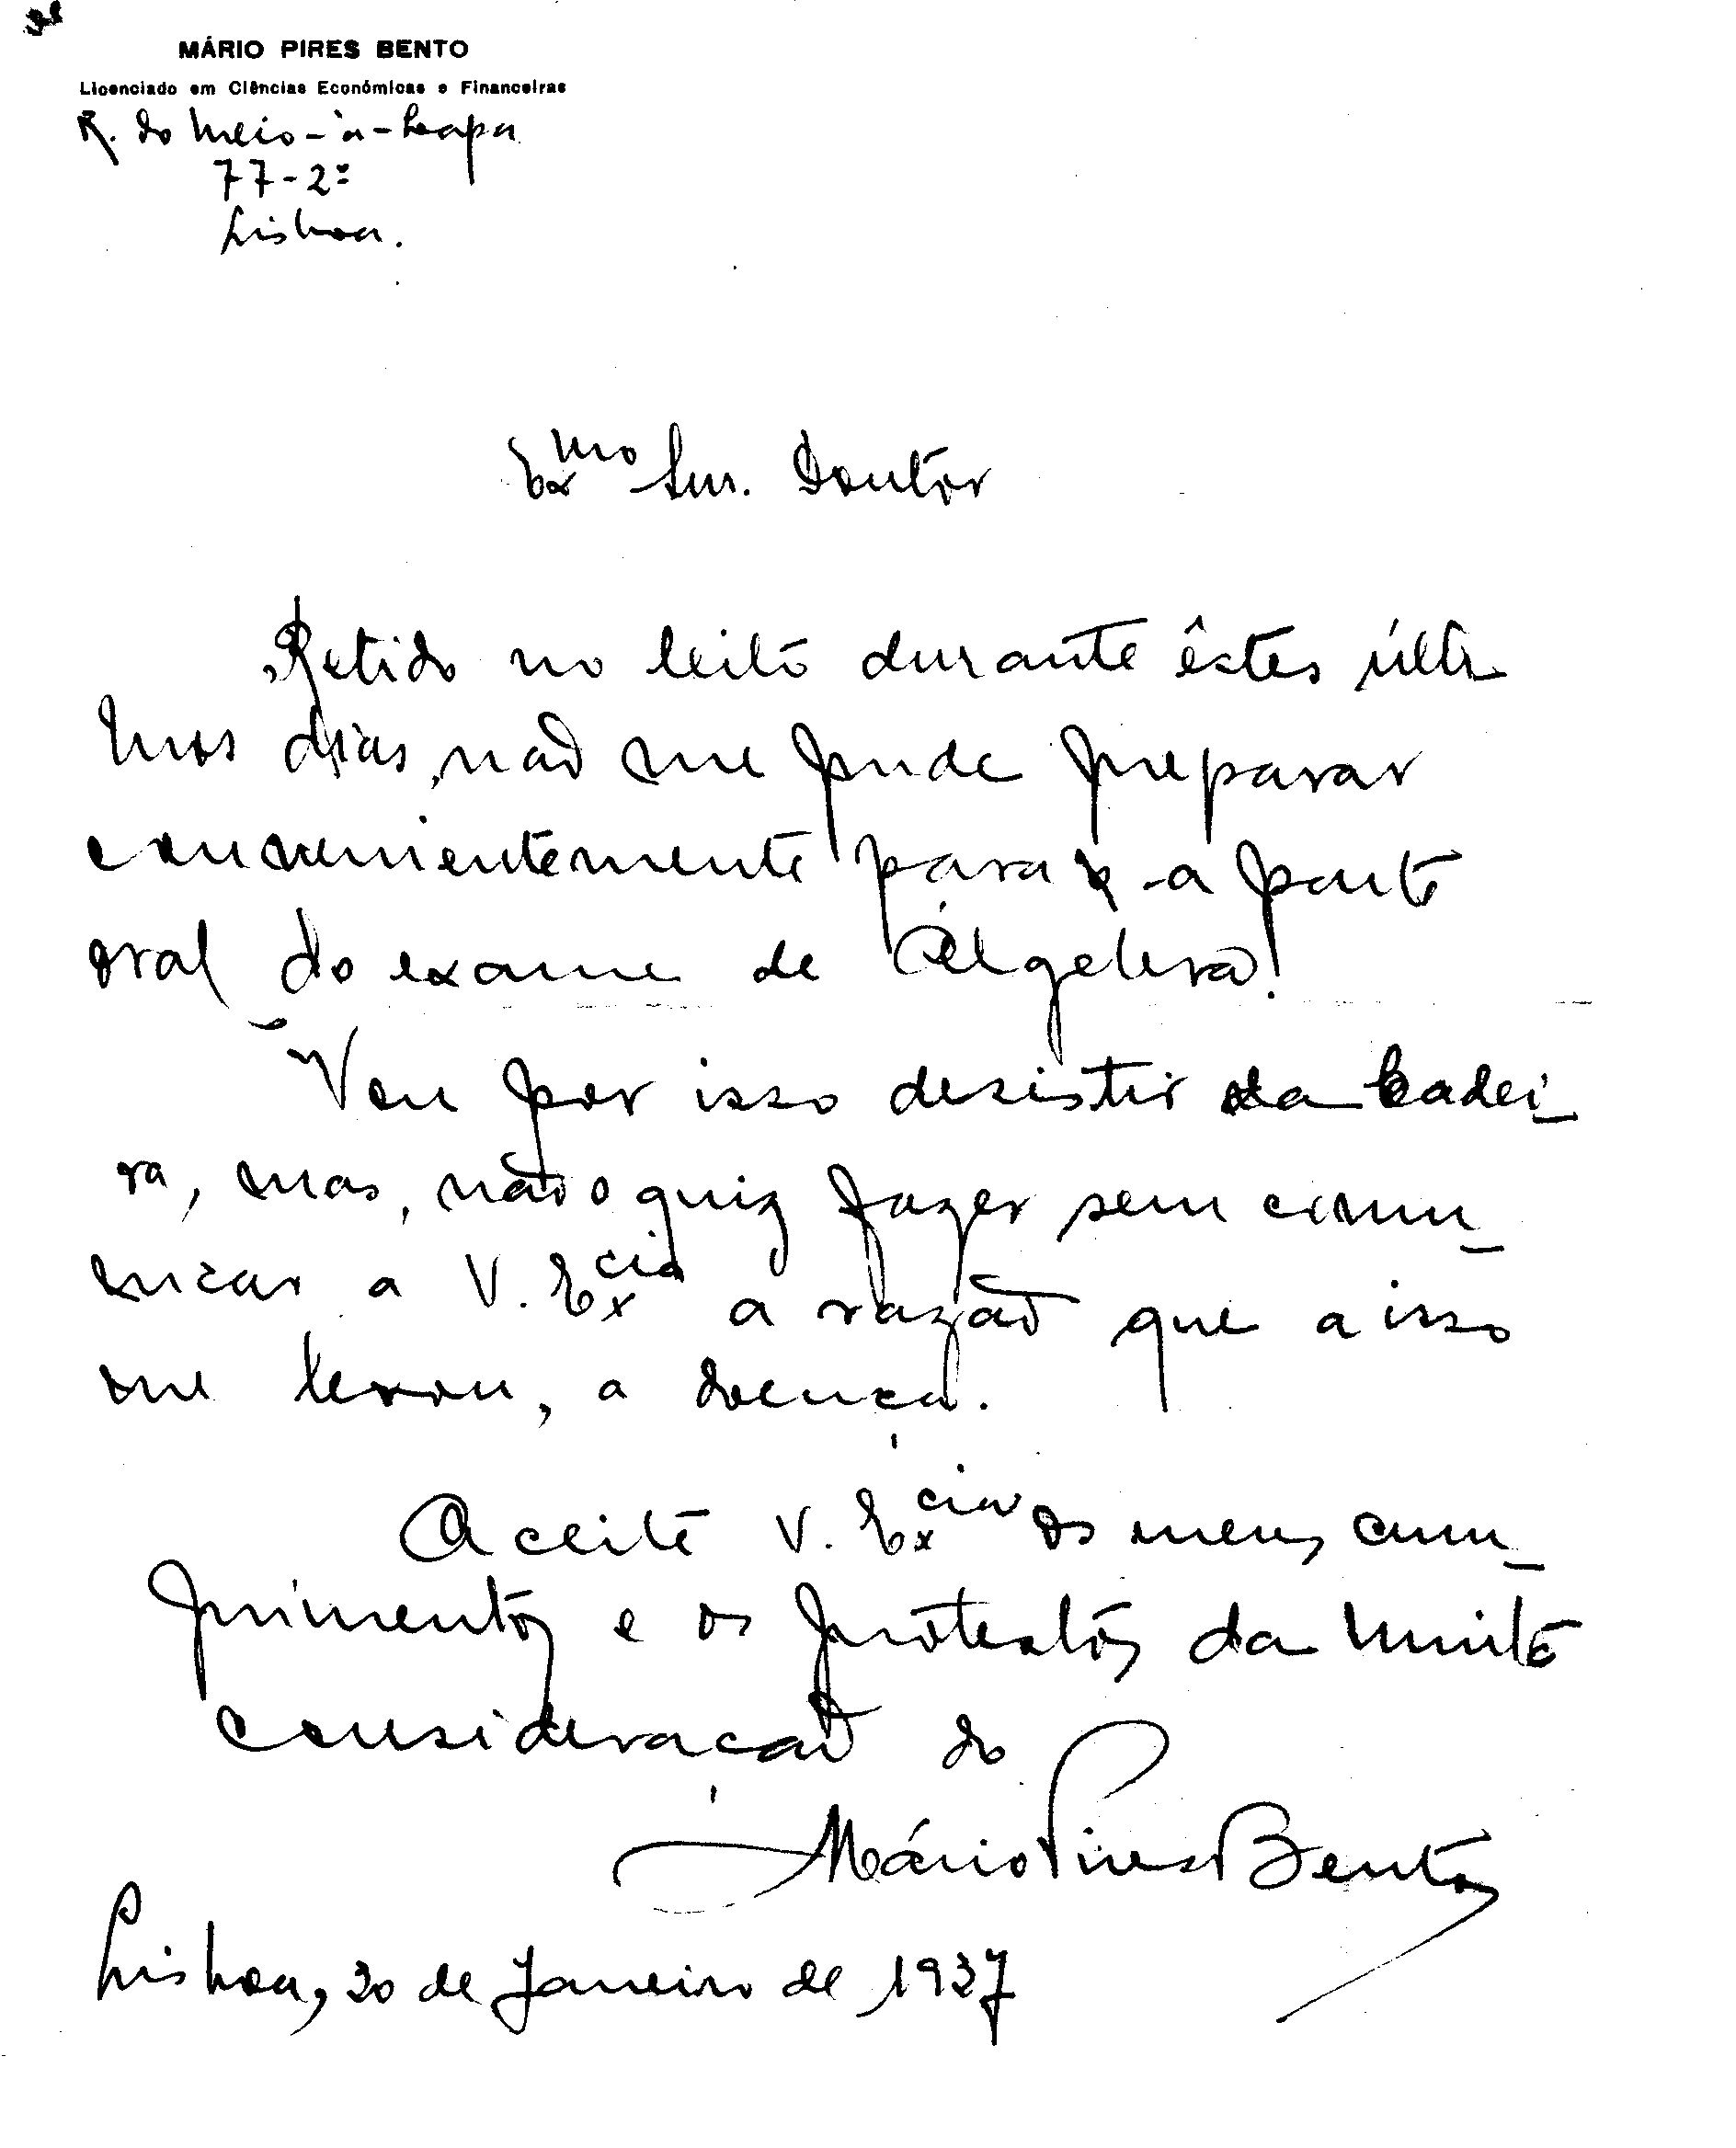 MÁRIO PIRES BENTO
Licenciado em Ciências Económicas e Financeiras
R. do Meio-à-Lapa
77-2º
Lisboa.
Exmo Snr. Doutor
Retido no leito durante êstes últi
mos dias, não me pude preparar
convenientemente para a parte
oral do exame de Álgebra.
Vou por isso desistir da Cadei-
ra, mas, não o quiz fazer sem comu-
nicar a V. Excia a razão que a isso
me levou, a doença.
Aceite V. Excia os meus cum-
primentos e os protestos da muita
consideração do
Mário Pires Bento
Lisboa, 20 de Janeiro de 1937